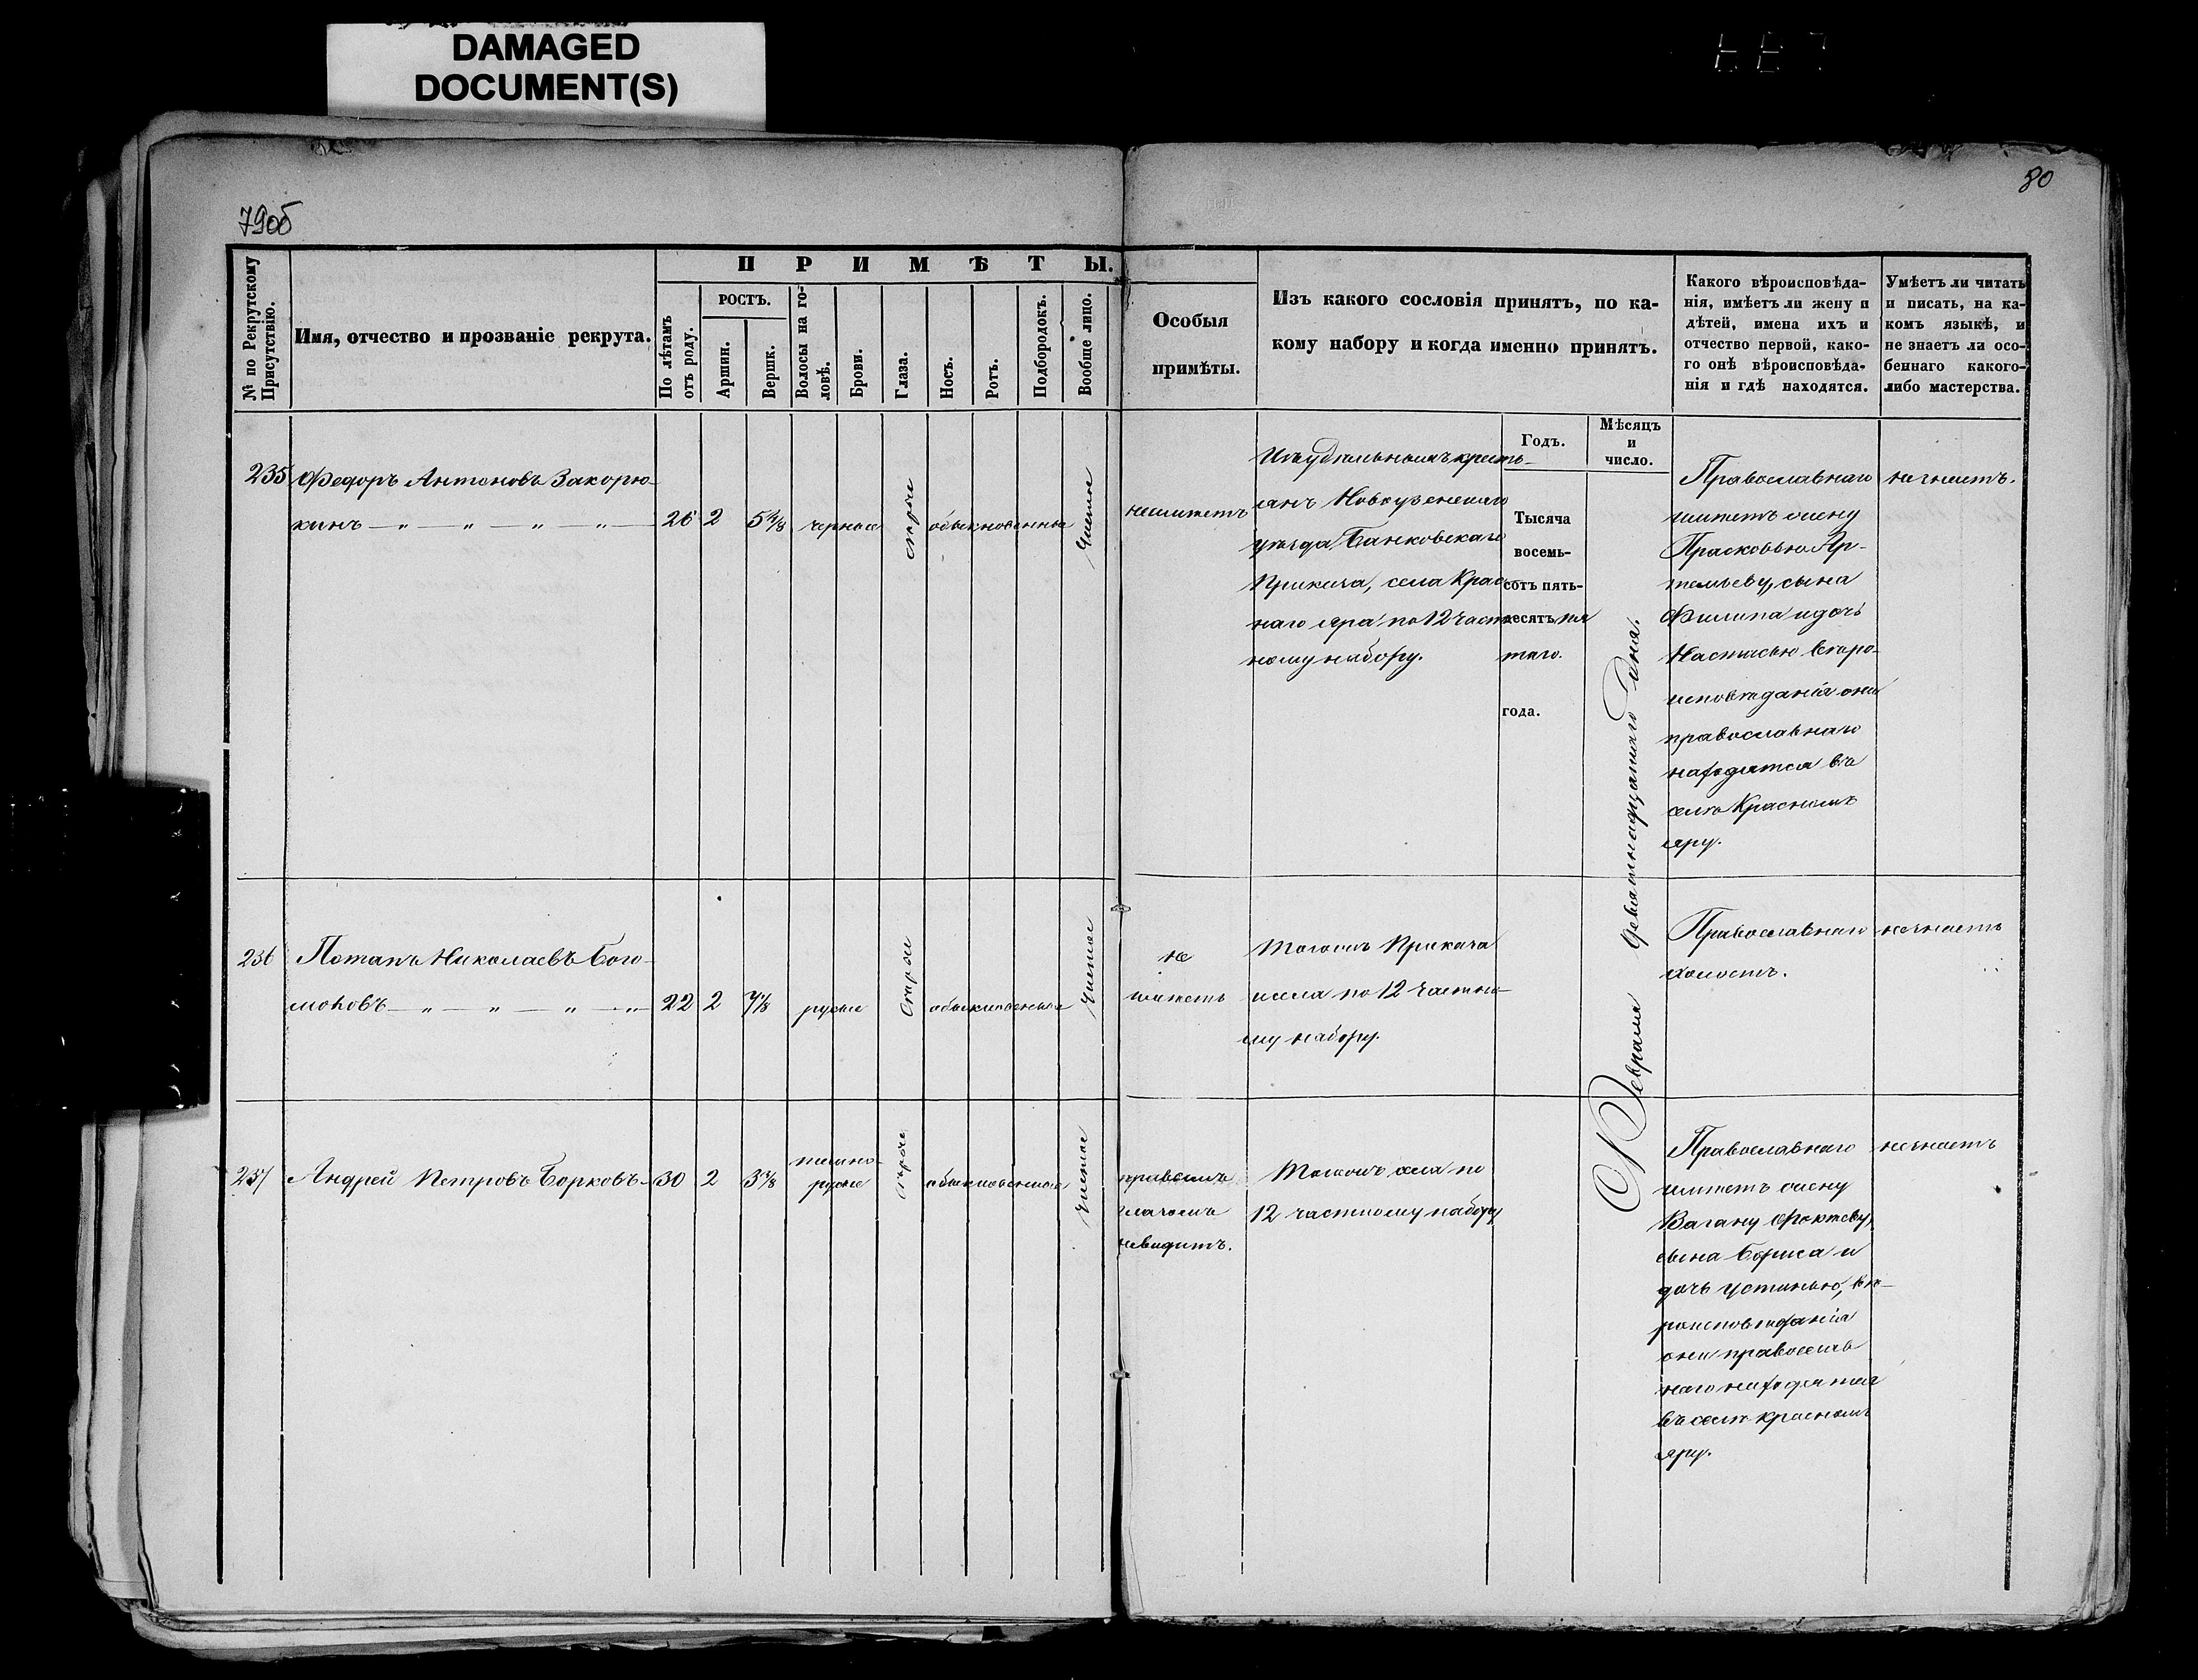 DAMAGED
DOCUMENT(S)
79об
80
№ по Рекрутскому
Присутствію.
Имя, отчество и прозваніе рекрута.
ПРИМѢТЫ.
По лѣтамъ
отъ роду.
РОСТЪ.
Аршин.
Вершк.
Волосы на го-
ловѣ.
Брови.
Глаза.
Носъ.
Ротъ.
Подбородокъ.
Вообще лицо.
Особыя
примѣты.
Изъ какого сословія принятъ, по ка-
кому набору и когда именно принятъ.
Какого вѣроисповѣда-
нія, имѣетъ ли жену и
дѣтей, имена ихъ и
отчество первой, како-
го онѣ вѣроисповѣда-
нія и гдѣ находятся.
Умѣетъ ли читать
и писать, на ка-
комъ языкѣ, и
не знаетъ ли осо-
беннаго какого-
либо мастерства.
Годъ.
Мѣсяцъ
и
число.
235
Федоръ Антоновъ Закорю-
кинъ — „ — „ — „ — „ —
26
2
черные
сѣрые
обыкновенные
чистое
неимѣетъ
Изъ удѣльныхъ кресть-
янъ Новоузенскаго
уѣзда, Банковскаго
Приказа, села Крас-
наго яра по 12 част-
ному набору.
Тысяча
восемь-
сотъ пять-
десятъ пя
таго.
года.
Февраля девятнадцатаго дня.
Православнаго
имѣетъ жену
Прасковью Ар-
темьеву, сына
Филипа и дочь
Настасью вѣро-
исповѣданія они
православнаго
находятся въ
селѣ Красномъ
яру.
незнаетъ.
236
Потапъ Николаевъ Бого-
моловъ — „ — „ — „ — „ —
22
2
7 1/8
русые
сѣрые
обыкновенные
чистое
не
имѣетъ
Тогожъ Приказа
и села по 12 частно-
му набору.
Православнаго
холостъ.
незнаетъ
237
Андрей Петровъ Борковъ —
30
2
темно-
русые
сѣрые
обыкновенные
чистое
правымъ
глазомъ
невидитъ.
Тогожъ села по
12 частному набору
Православнаго
имѣетъ жену
сына Бориса и
дочь Устинью, вѣ-
роисповѣданія
они православ
наго находятся
въ селѣ красномъ
яру.
незнаетъ